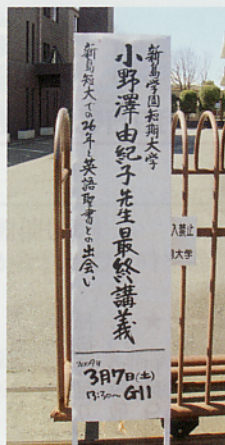 新島学園短期大学
小野澤由紀子先生最終講義
新島短大での26年～英語聖書との出会い
2009年
3月7日(土)
13:30～ G11
入禁止
大学